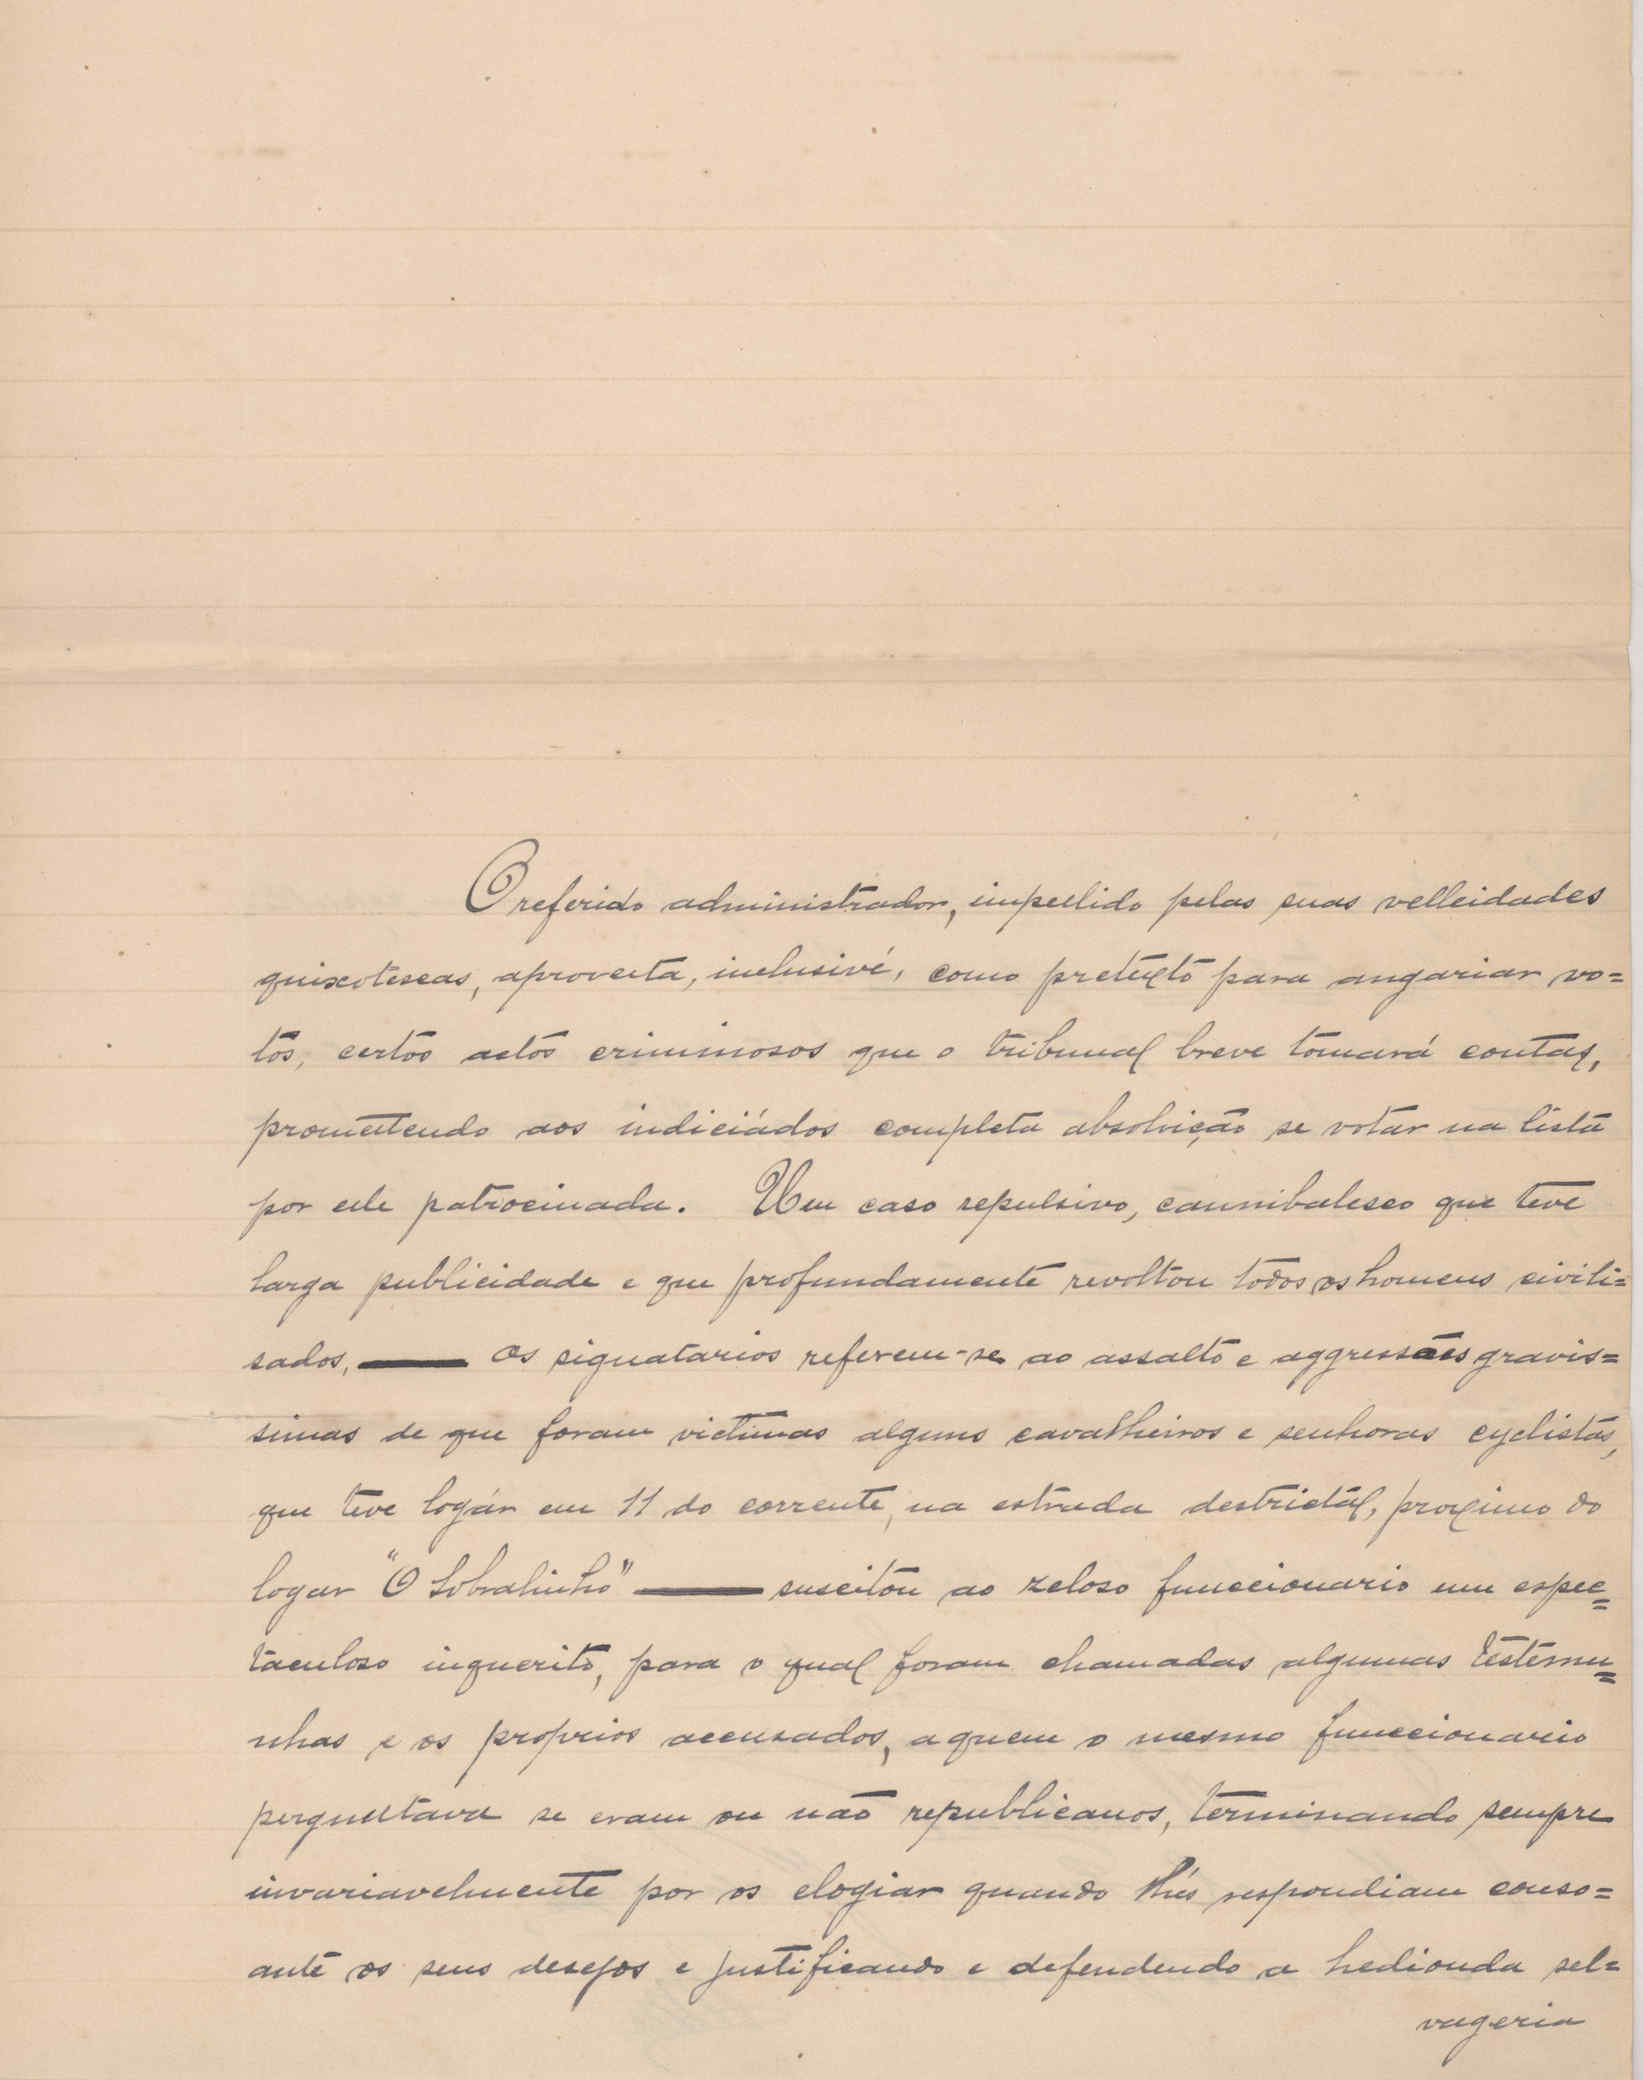 O referido administrador, impellido pelas suas velleidades
quixotescas, aproveita, inclusivé, como pretexto para angariar vo=
tos, certos actos criminosos que o tribunal breve tomará contas,
promettendo aos indiciádos completa absolvição se votar na lista
por elle patrocinada. Um caso repulsivo, cannibalesco que teve
larga publicidade e que profundamente revoltou todos os homens civili=
sados, — os signatarios referem-se ao assalto e aggressões gravis=
simas de que foram victimas alguns cavalheiros e senhoras cyclistas,
que teve logár em 11 do corrente, na estrada destrictal, proximo do
logar "O Sobralinho" — suscitou ao zeloso funccionario um espec=
taculoso inquerito, para o qual foram chamadas algumas testemu=
nhas e os proprios accusados, a quem o mesmo funccionario
perguntava se eram ou não republicanos, terminando sempre
invariavelmente por os elogiar quando lhes respondiam conso=
ante os seus desejos e justificando e defendendo a hedionda sel=
vageria